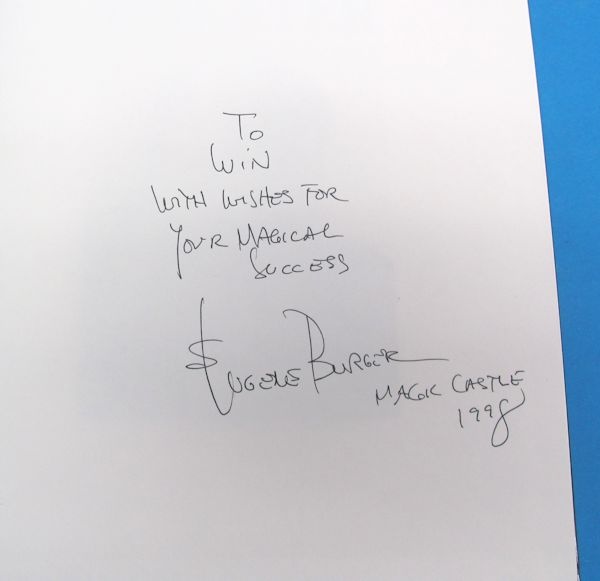 To
WiN
WITH WISHES FOR
YOUR MAGICAL
SUCCESS
EUGENE BURGER
MAGIC CASTLE
1998